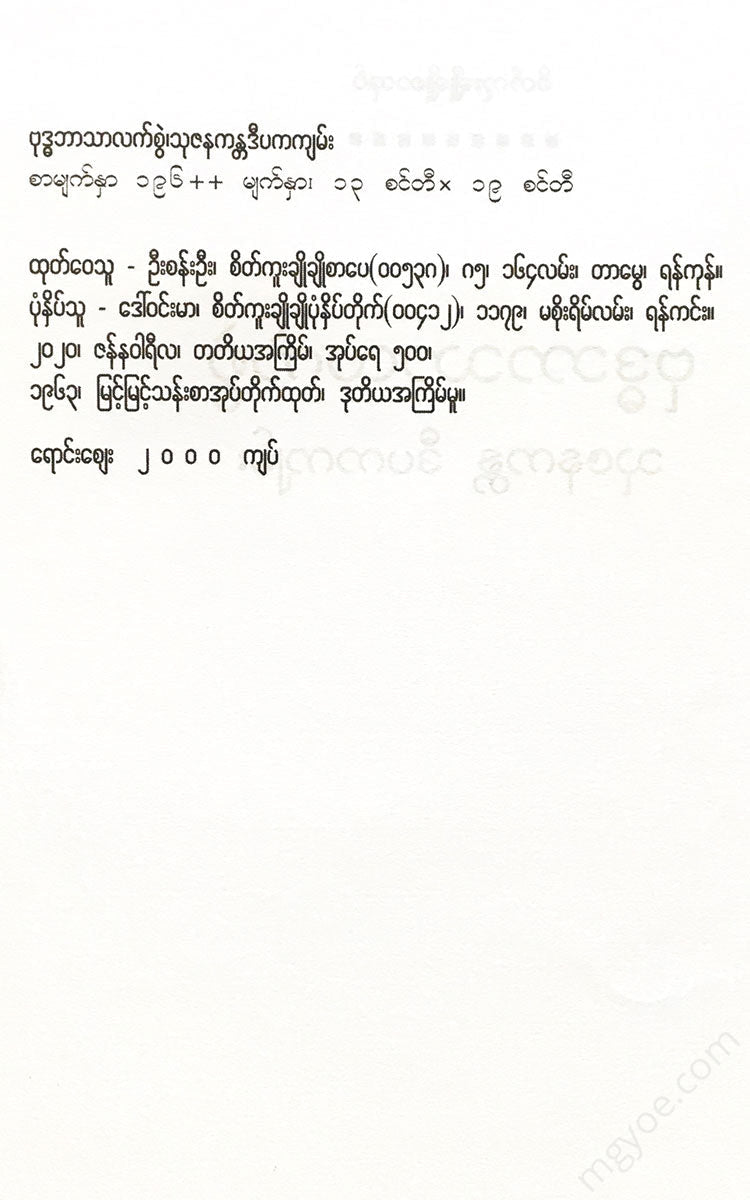 ဗုဒ္ဓဘာသာလက်စွဲ၊သုဇနကန္တဒီပကကျမ်း
စာမျက်နှာ ၁၉၆++ မျက်နှာ၊ ၁၃ စင်တီ× ၁၉ စင်တီ
ထုတ်ဝေသူ - ဦးစန်းဦး၊ စိတ်ကူးချိုချိုစာပေ(၀၀၅၃ဂ)၊ ဂ၅၊ ၁၆၄လမ်း၊ တာမွေ၊ ရန်ကုန်။
ပုံနှိပ်သူ - ဒေါ်ဝင်းမာ၊ စိတ်ကူးချိုချိုပုံနှိပ်တိုက်(၀၀၄၁၂)၊ ၁၁၇၉၊ မစိုးရိမ်လမ်း၊ ရန်ကင်း။
၂၀၂၀၊ ဇန်နဝါရီလ၊ တတိယအကြိမ်၊ အုပ်ရေ ၅၀၀၊
၁၉၆၃၊ မြင့်မြင့်သန်းစာအုပ်တိုက်ထုတ်၊ ဒုတိယအကြိမ်မူ။
ရောင်းဈေး ၂ ၀ ၀ ၀ ကျပ်
mgyoe.com